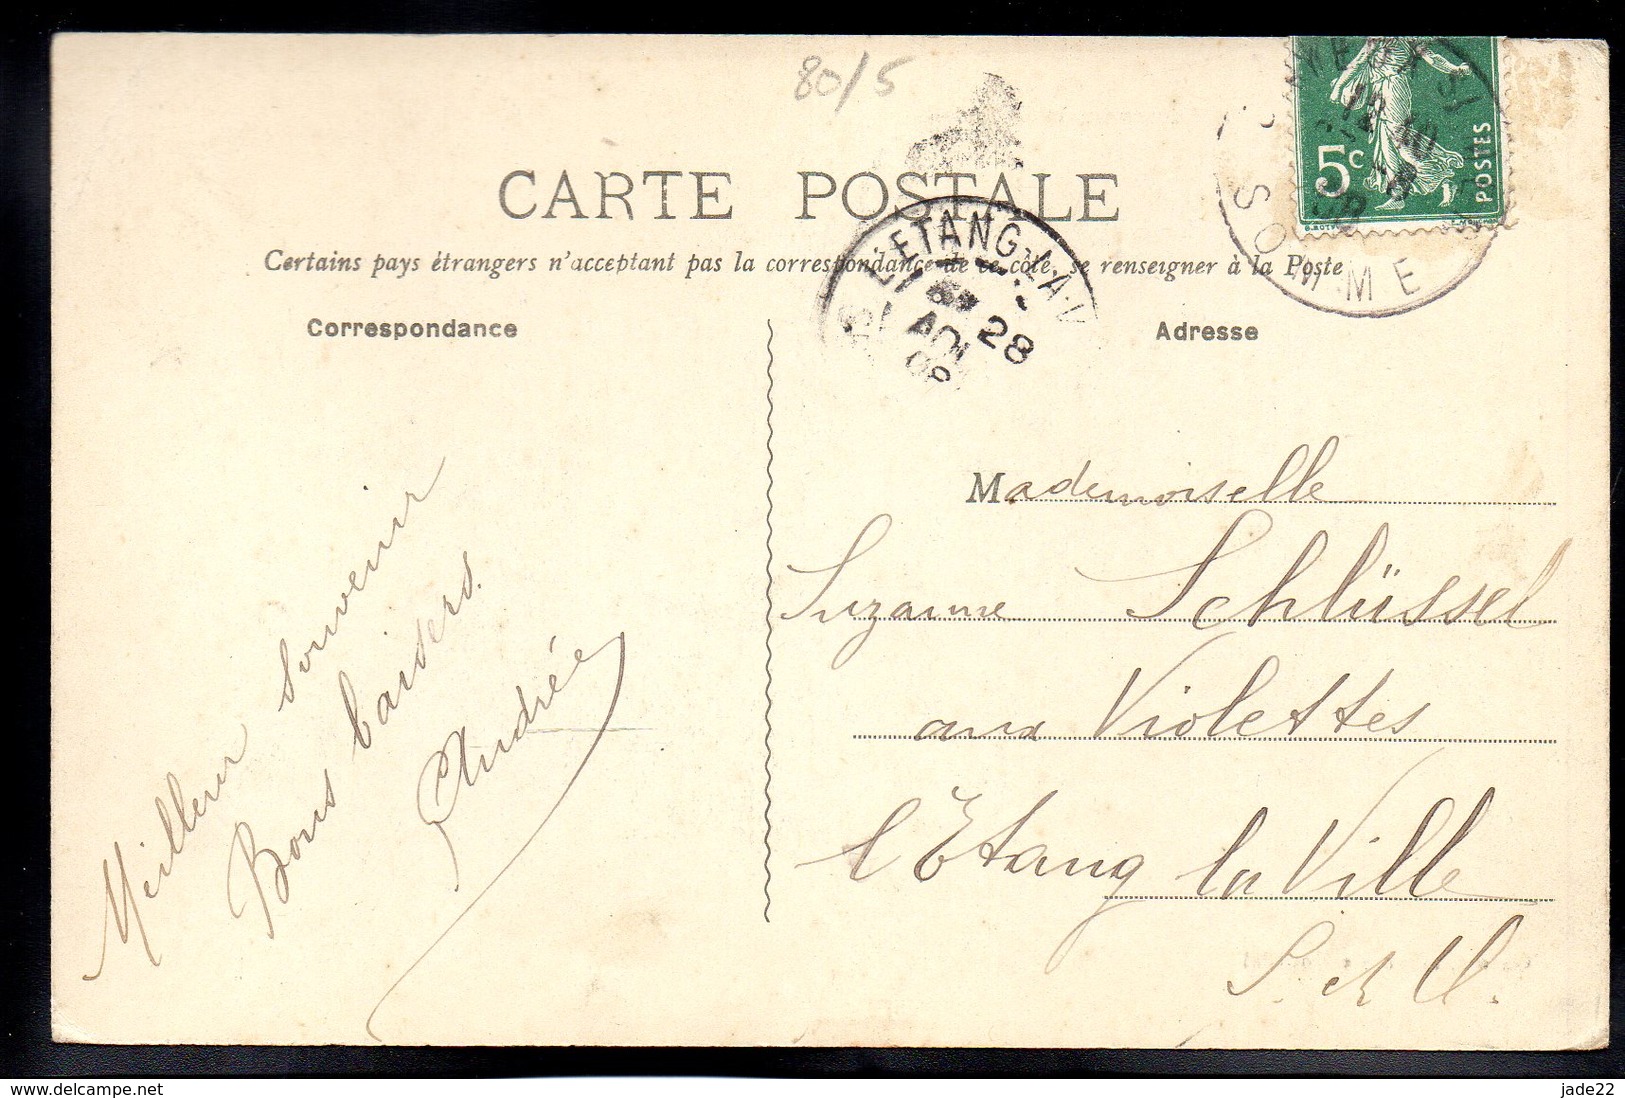 80/5
5c
POSTES
SOMME
CARTE POSTALE
L'ETANG-LA-V
28
AOU
08
Certains pays étrangers n'acceptant pas la correspondance de ce côté, se renseigner à la Poste
Correspondance
Adresse
Meilleur souvenir
Bons baisers.
Andrée
Mademoiselle
Suzanne Schlüssel
aux Violettes
l'Etang la Ville
S. et O.
http://www.delcampe.net
jade22